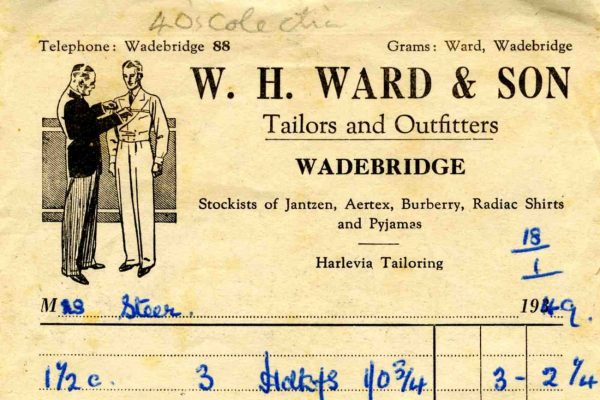 40s Colectic
Telephone: Wadebridge 88
Grams: Ward, Wadebridge
W. H. WARD & SON
Tailors and Outfitters
WADEBRIDGE
Stockists of Jantzen, Aertex, Burberry, Radiac Shirts
and Pyjamas
Harlevia Tailoring
18
1
Mrs Steer. 1949.
1½ c. 3 10 ¾ 3 - 2 ¼